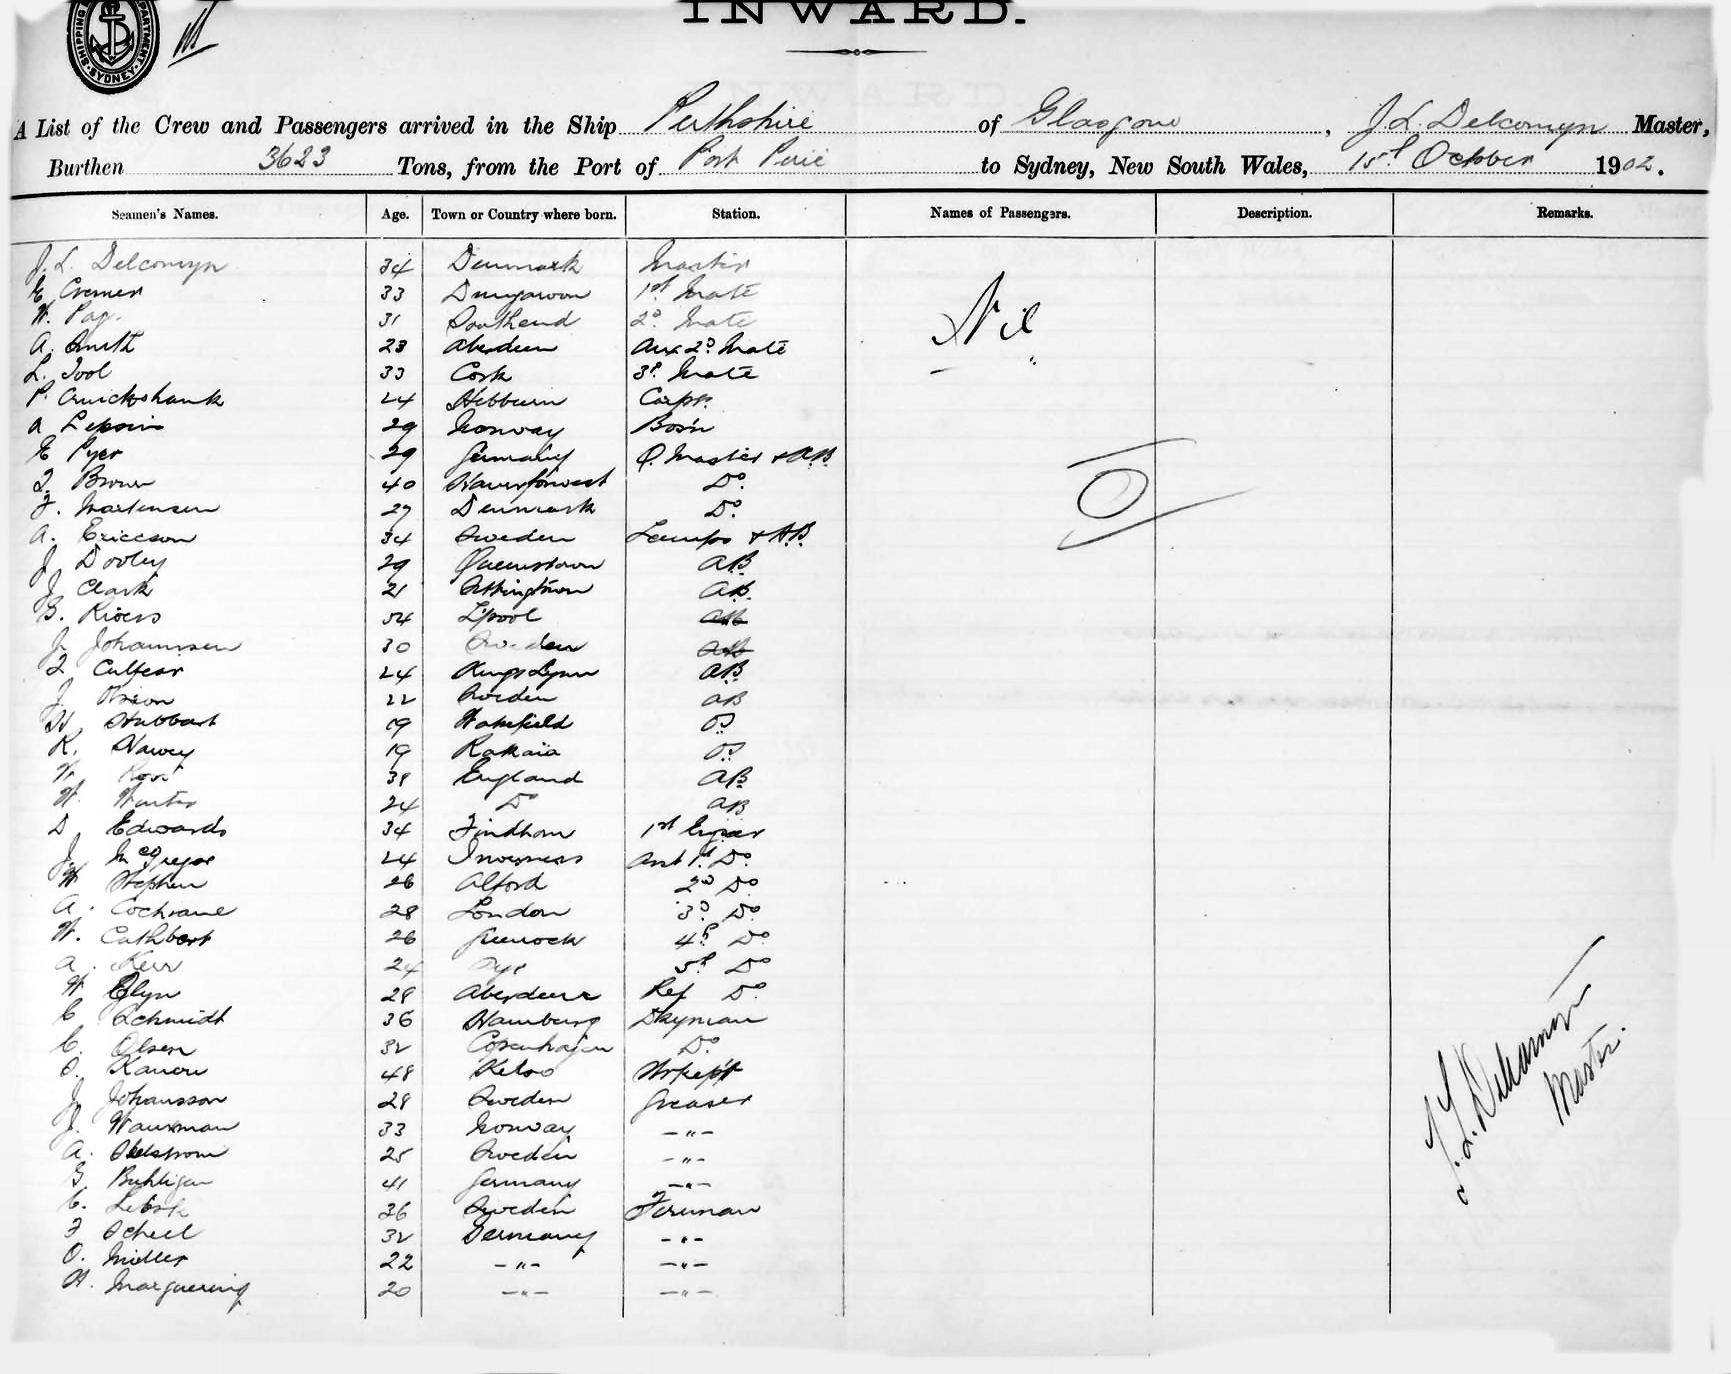 INWARD.
SHIPPING DEPARTMENT. SYDNEY.
A List of the Crew and Passengers arrived in the Ship Perthshire of Glasgow, J. L. Delcomyn Master,
Burthen 3623 Tons, from the Port of Port Pirie to Sydney, New South Wales, 15th October 1902.
Seamen's Names. Age. Town or Country where born. Station. Names of Passengers. Description. Remarks.
J. L. Delcomyn 34 Denmark Master
E Cremer 33 Dungarvon 1st Mate
W. 31 Southend 2D Mate
A. Smith 23 Aberdeen Aux 2D Mate
Nil
L. Tool 33 Cork 3D Mate
P. Cruickshank 24 Hebburn Carpr.
A 29 Norway Bosn
E Pyer 29 Germany Q. Master + A.B.
Brown 40 Haverfordwest Do.
F. Martensen 27 Denmark Do.
A. Ericcson 34 Sweden Lamps + A.B.
J. Dooley 29 Queenstown A.B.
J Clark 21 A.B.
G. Rivers 54 L'pool AB
J. Johannsen 30 Sweden AB
24 Kings Lynn AB
J. 22 Sweden AB
H. Hubbart 19 Wakefield
R. 19 Rakaia
W. 39 England AB
W. 24 Do AB
D Edwards 34 Findhorn 1st
J. McGregor 24 Inverness Do.
W Stephen 26 Alford 2D Do
A. Cochrane 28 London 3D Do.
W. Cathbert 26 Greenock 4th Do
A. Kerr 24 Ayr 5th Do
W Glyn 29 Aberdeen Ref Do.
C Schmidt 36 Hamburg Dkyman
C. Olsen 32 Copenhagen Do.
48 Kelso
J. Johansson 29 Sweden Greaser
J. 33 Norway -"-
A. 25 Sweden -"-
G Buhligen 41 Germany -"-
C. 36 Sweden Fireman
F Scheel 32 Germany -"-
O. Müller 22 -"- -"-
H. 20 -"- -"-
J. L. Delcomyn
Master.